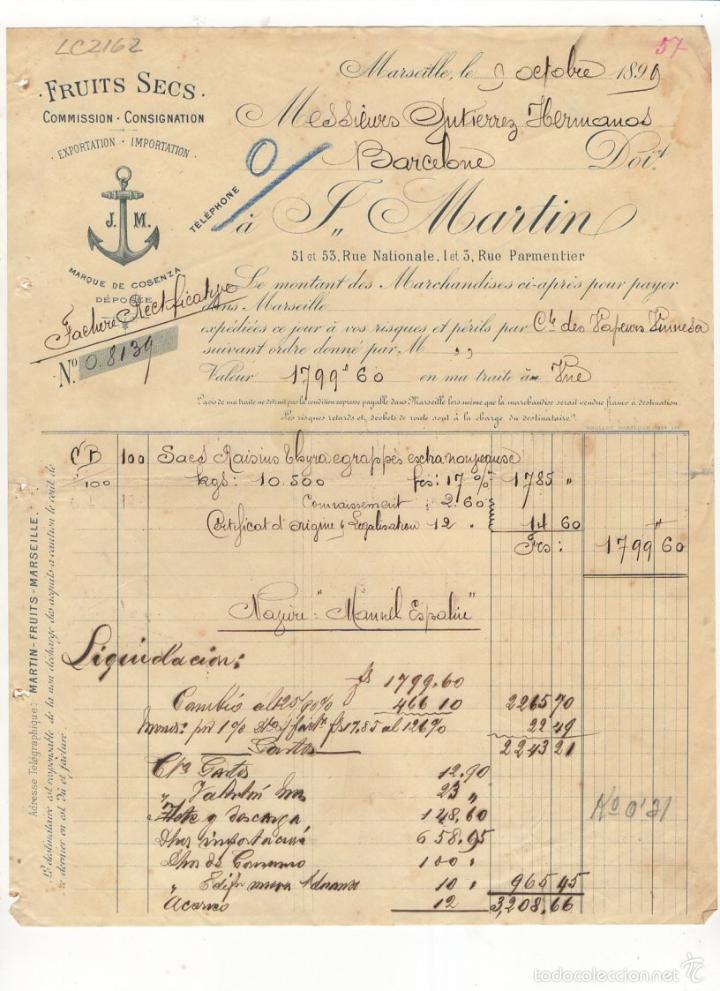 LC2162
57
FRUITS SECS
COMMISSION - CONSIGNATION
EXPORTATION - IMPORTATION
J. M.
MARQUE DE COSENZA
DÉPOSÉE
Facture Rectificative
Nº 0.8139
TÉLÉPHONE
Marseille, le 9 octobre 1899
Messieurs Gutierrez Hermanos
Barcelone Doivt
à J. Martin
51 et 53, Rue Nationale, 1 et 3, Rue Parmentier
Le montant des Marchandises ci-après pour payer
dans Marseille
expédiées ce jour à vos risques et périls par Cie des Vapeurs Vinuesa
suivant ordre donné par M „
Valeur 1799f 60 en ma traite à Vue
L'avis de ma traite ne détruit pas la condition expresse payable dans Marseille lors même que la marchandise serait vendue franco à destination.
Les risques retards et déchets de route sont à la charge du destinataire.
CB 100 Sacs Raisins Thyra egrappés
100 kgs: 10.500 frs: 17 % 1785 "
Connaissement 2.60
Certificat d'origine & Legalisation 12 " 14 60
Frs: 1799 60
Navire "Manuel Espaliu"
Liquidacion:
fs 1799.60
Cambio al 25/90% 466 10 2265 70
22 49
Gastos 2243 21
Cta Gastos 12.90
23 "
Flete y descarga 148.60
Dhos importación 658.95
100 "
" 10 " 965 45
Acarreo 12 3,208.66
Ko 0'31
Adresse Télégraphique: MARTIN-FRUITS-MARSEILLE.
Le destinataire est responsable de la non décharge des acquits-à-caution le coût de
ce dernier en est dû et facturé.
todocoleccion.net